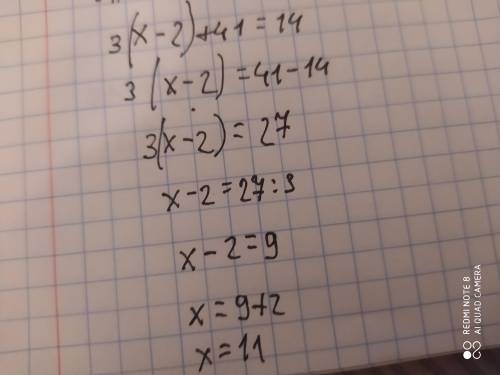 3(x-2)+41=14
3(x-2)=41-14
3(x-2)=27
x-2=27:3
x-2=9
x=9+2
x=11
REDMI NOTE 8
AI QUAD CAMERA